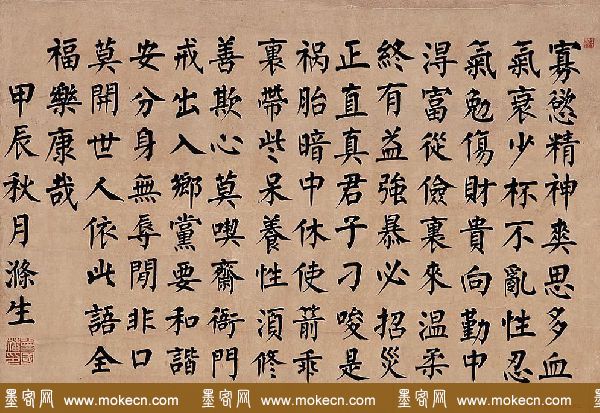 寡慾精神爽思多血
氣衰少杯不亂性忍
氣勉傷財貴向勤中
淂富從儉裏來温柔
終有益強暴必招災
正直真君子刁唆是
祸胎暗中休使箭乖
裏帶些呆養性湏修
善欺心莫喫齋衙門
戒出入鄉黨要和諧
安分身無辱閒非口
莫開世人依此語全
福樂康哉
甲辰秋月滌生
墨客网 www.mokecn.com 墨客网 www.mokecn.com 墨客网 www.mokecn.com